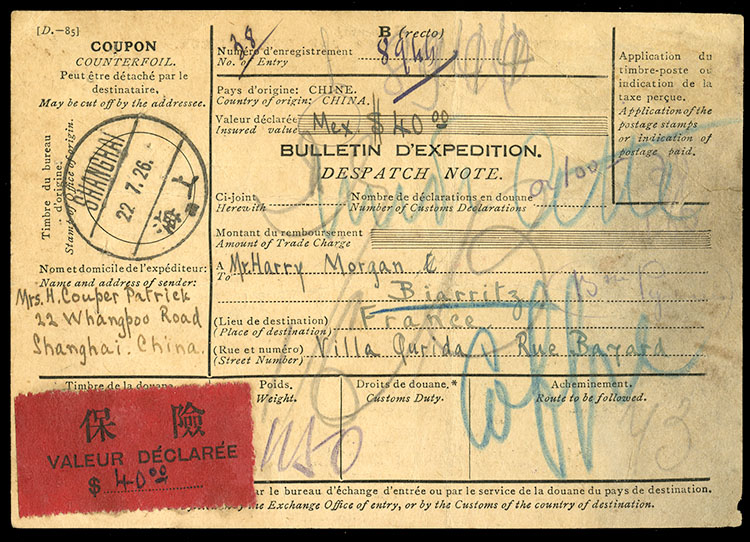 [D.—85]
COUPON
COUNTERFOIL.
Peut être détaché par le
destinataire,
May be cut off by the addressee.
Timbre du bureau
d'origine.
Stamp of Office of origin.
SHANGHAI
22.7.26.
海上
Nom et domicile de l'expéditeur:
Name and address of sender:
Mrs. H. Couper Patrick
22 Whangpoo Road
Shanghai. China.
B (recto)
38
Numéro d'enregistrement
No. of Entry
8944
Pays d'origine: CHINE.
Country of origin: CHINA.
Valeur déclarée
Insured value
Mex $ 40 00
BULLETIN D'EXPEDITION.
DESPATCH NOTE.
Ci-joint
Herewith
Nombre de déclarations en douane
Number of Customs Declarations
Montant du remboursement
Amount of Trade Charge
A
To
Mr. Harry Morgan
Biarritz
(Lieu de destination)
(Place of destination)
France
(Rue et numéro)
(Street Number)
Villa Qurida - Rue Bayard
Application du
timbre-poste ou
indication de la
taxe perçue.
Application of the
postage stamps
or indication of
postage paid.
Timbre de la douane
Poids.
Weight.
1150
Droits de douane.*
Customs Duty.
Acheminement.
Route to be followed.
Coffre
保 險
VALEUR DÉCLARÉE
$ 40 00
par le bureau d'échange d'entrée ou par le service de la douane du pays de destination.
of the Exchange Office of entry, or by the Customs of the country of destination.